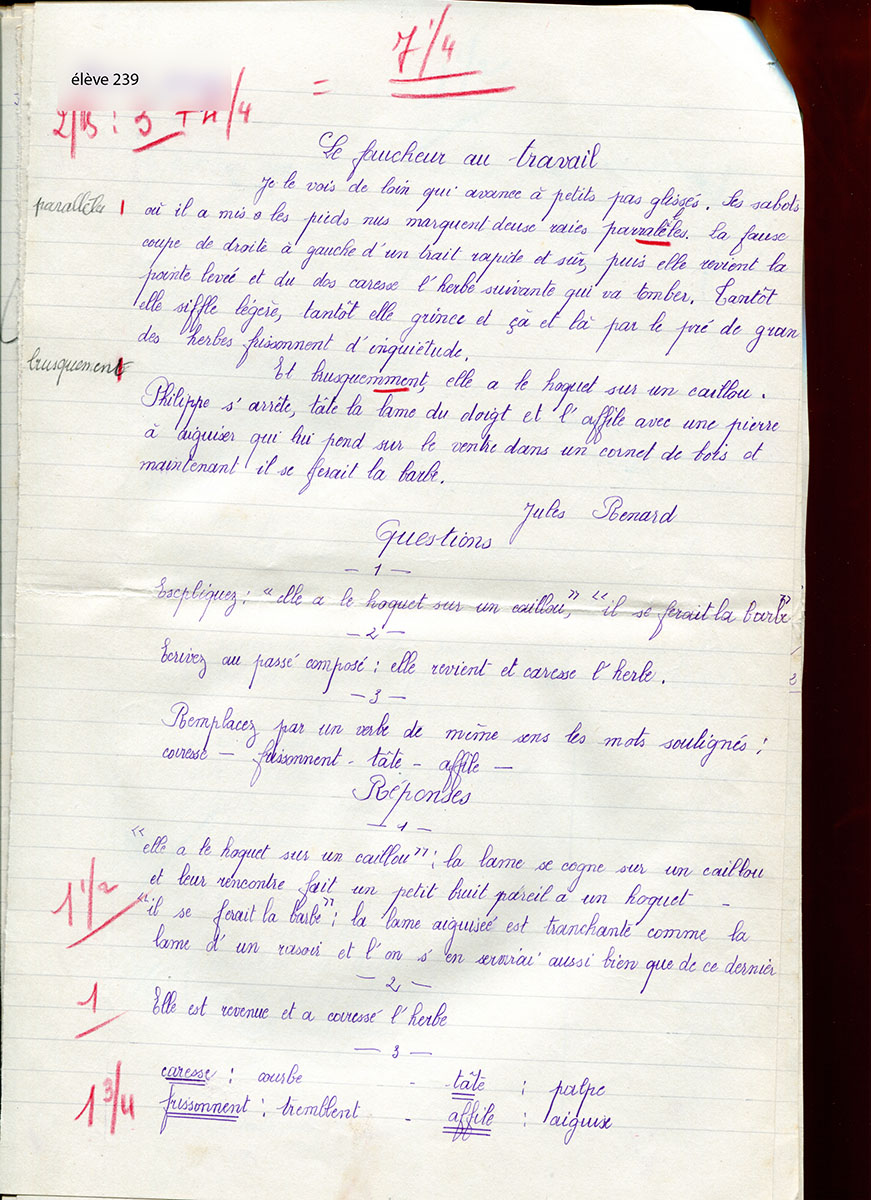 élève 239
= 7 1/4
5
Le faucheur au travail
Je le vois de loin qui avance à petits pas glissés. Ses sabots
parallèles 1 où il a mis les pieds nus marquent deuse raies parralèles. La fause
coupe de droite à gauche d'un trait rapide et sûr, puis elle revient la
pointe levée et du dos caresse l'herbe suivante qui va tomber. Tantôt
elle siffle légère, tantôt elle grince et çà et là par le pré de gran
des herbes frissonnent d'inquiétude.
brusquement 1 Et brusquemment, elle a le hoquet sur un caillou.
Philippe s'arrête, tâte la lame du doigt et l'affile avec une pierre
à aiguiser qui lui pend sur le ventre dans un cornet de bois et
maintenant il se ferait la barbe.
Jules Renard
Questions
— 1 —
Escpliquez : "elle a le hoquet sur un caillou", "il se ferait la barbe"
— 2 —
Ecrivez au passé composé : elle revient et caresse l'herbe.
— 3 —
Remplacez par un verbe de même sens les mots soulignés :
caresse — frissonnent - tâte - affile —
Réponses
— 1 —
"elle a le hoquet sur un caillou" : la lame se cogne sur un caillou
1 1/2 et leur rencontre fait un petit bruit pareil à un hoquet -
"il se ferait la barbe" : la lame aiguiseé est tranchante comme la
lame d'un rasoir et l'on s'en servirai aussi bien que de ce dernier
— 2 —
1 Elle est revenue et a caressé l'herbe
— 3 —
caresse : courbe - tâte : palpe
1 3/4 frissonnent : tremblent - affile : aiguise